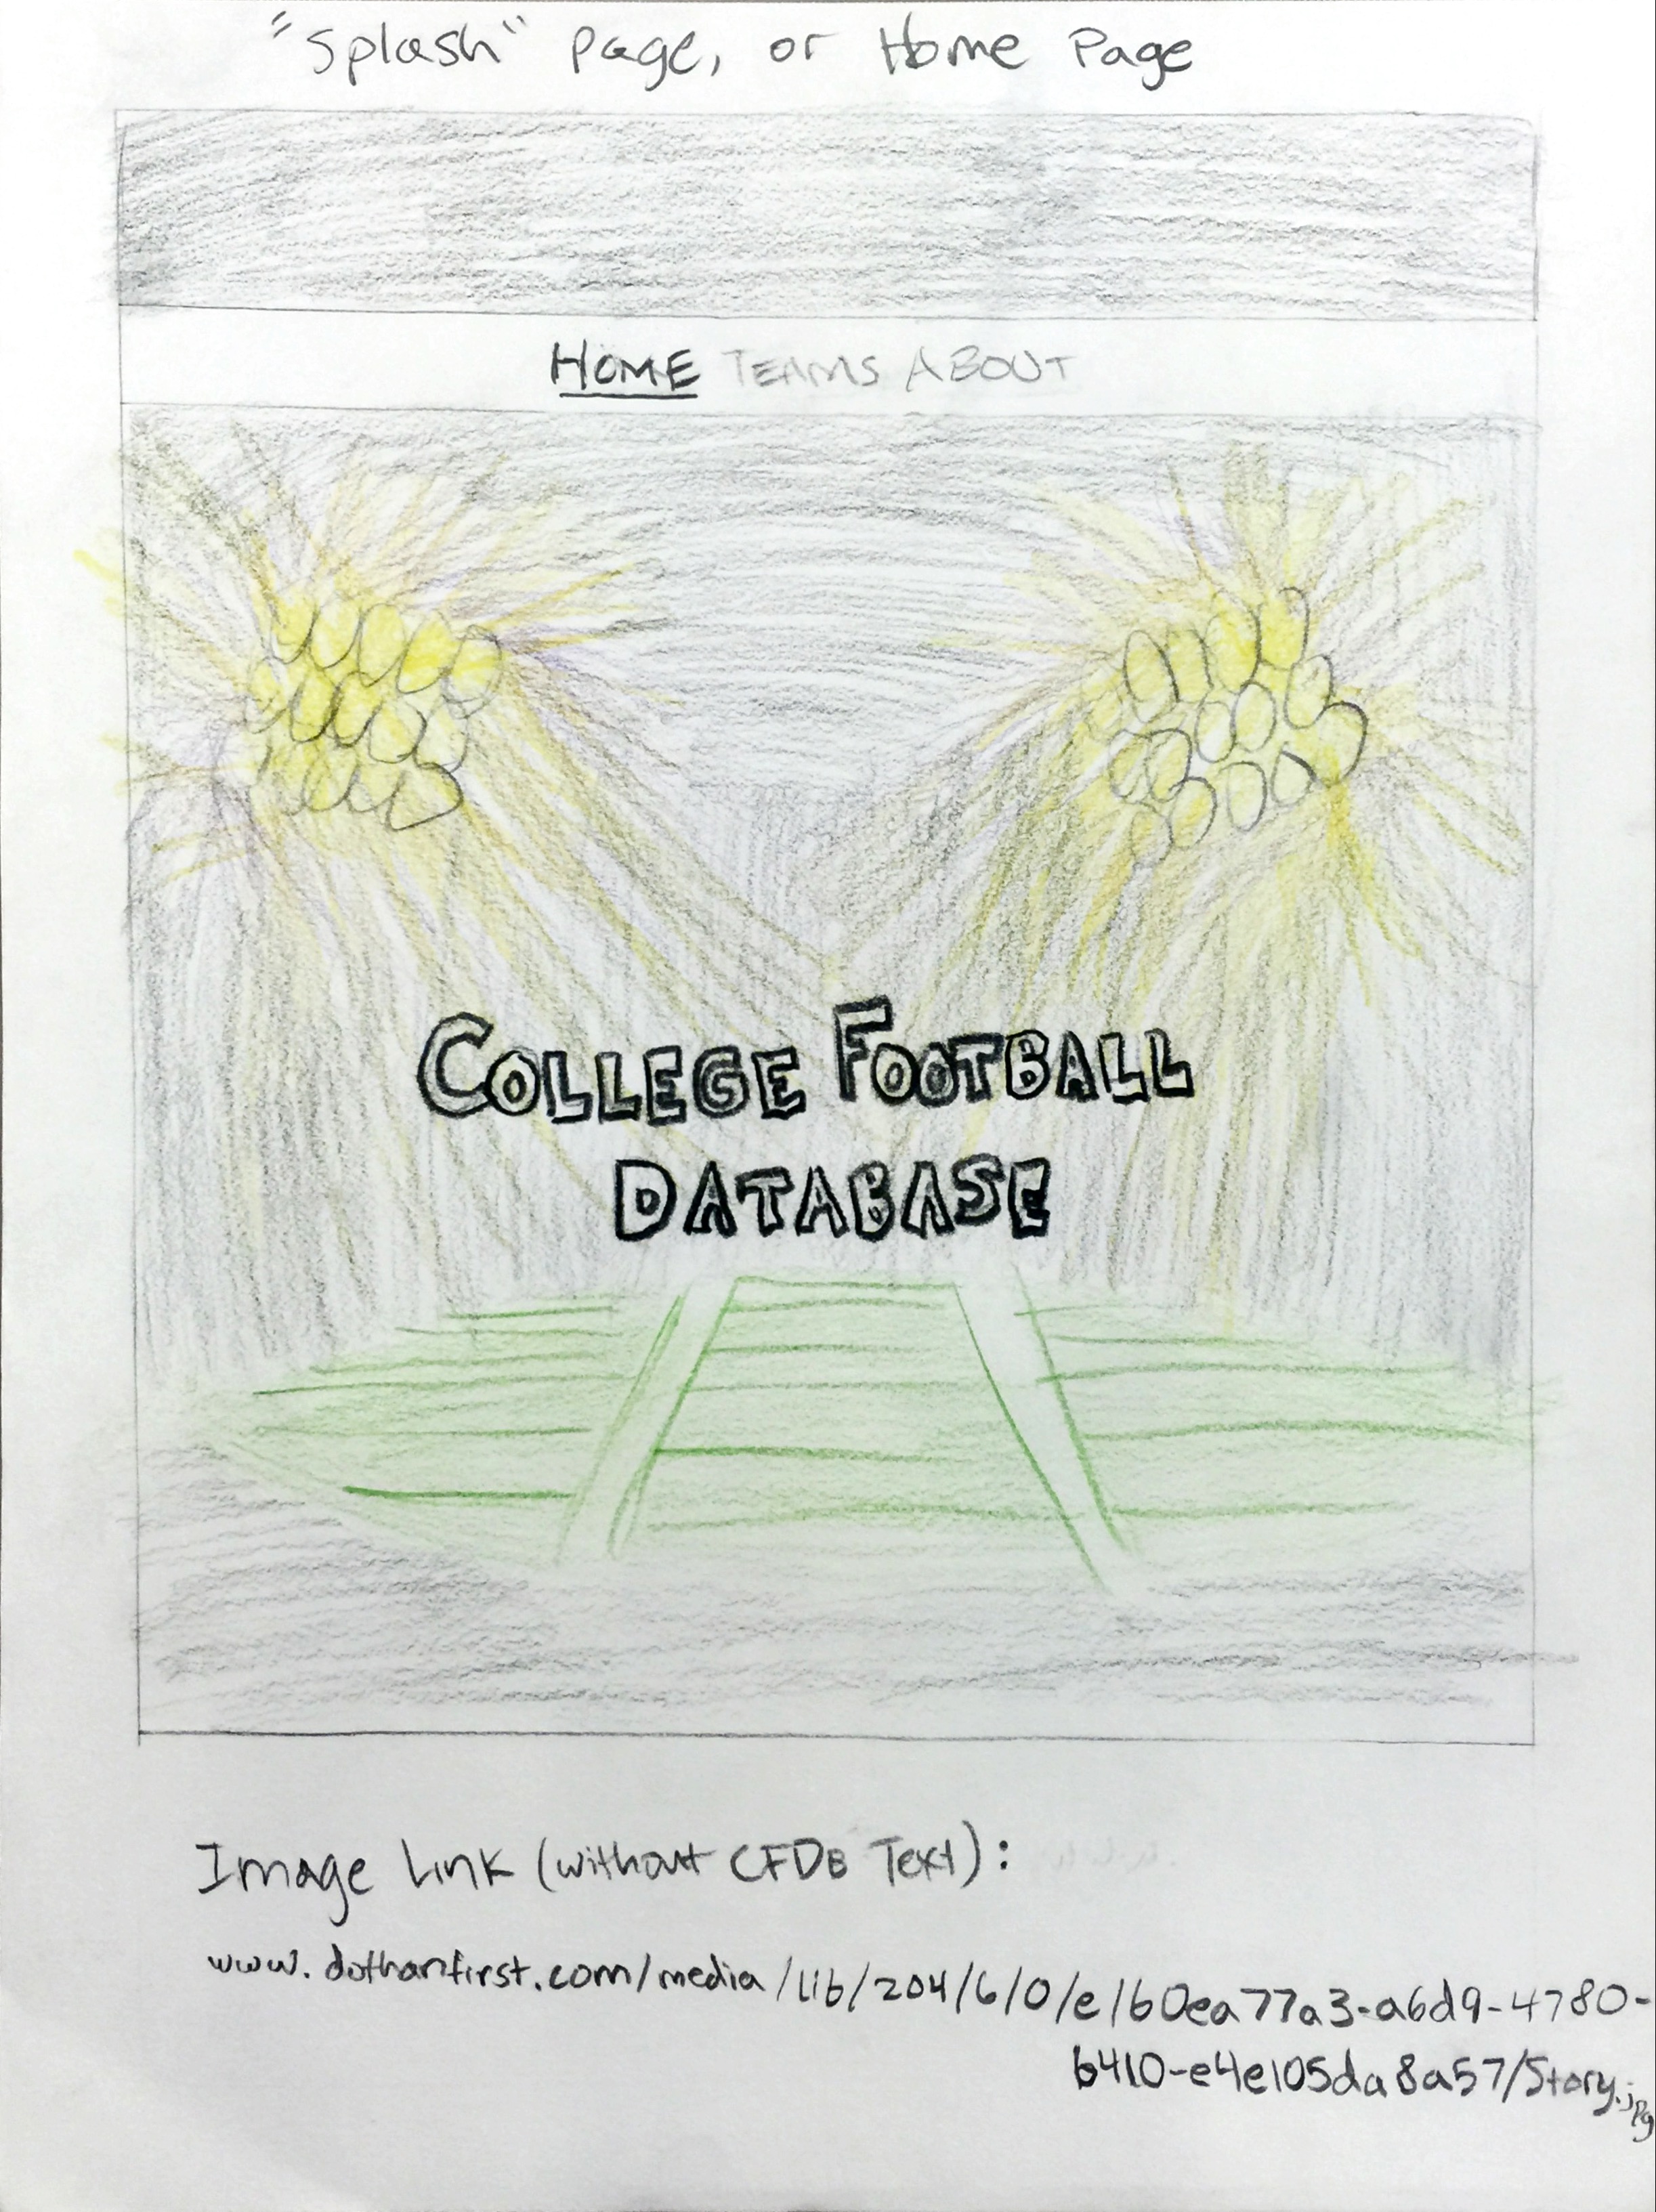 "Splash" Page, or Home Page
HOME TEAMS ABOUT
COLLEGE FOOTBALL
DATABASE
Image Link (without CFDB Text):
www.dothanfirst.com/media/lib/204/6/0/e/60ea77a3-a6d9-4780-
b410-e4e105da8a57/Story.jpg